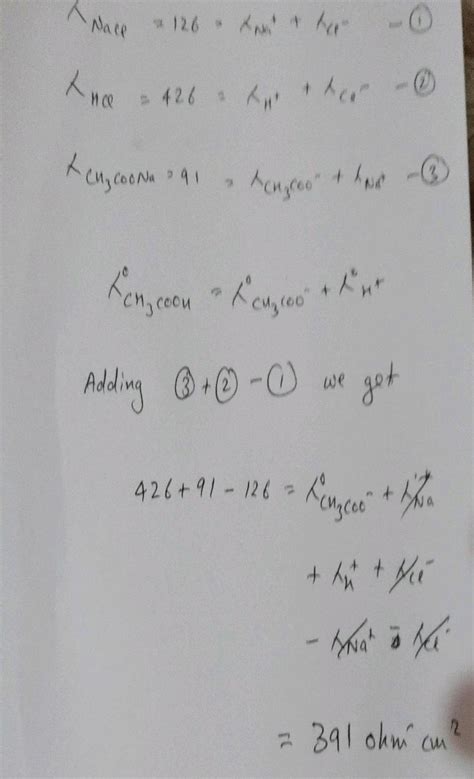 λNaCl = 126 = λNa⁺ + λCl⁻ - ①
λHCl = 426 = λH⁺ + λCl⁻ - ②
λCH₃COONa = 91 = λCH₃COO⁻ + λNa⁺ - ③
λ°CH₃COOH = λ°CH₃COO⁻ + λ°H⁺
Adding ③ + ② - ① we get
426 + 91 - 126 = λ°CH₃COO⁻ + λ⁺Na
+ λH⁺ + λCl⁻
- λNa⁺ - λCl⁻
= 391 ohm⁻ cm²